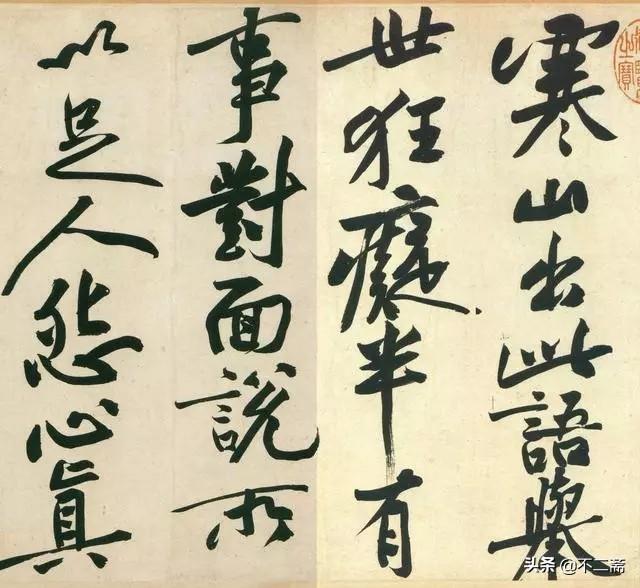 寒山出此語舉
世狂癡半有
事對面說所
以足人怨心真
头条 @不二斋